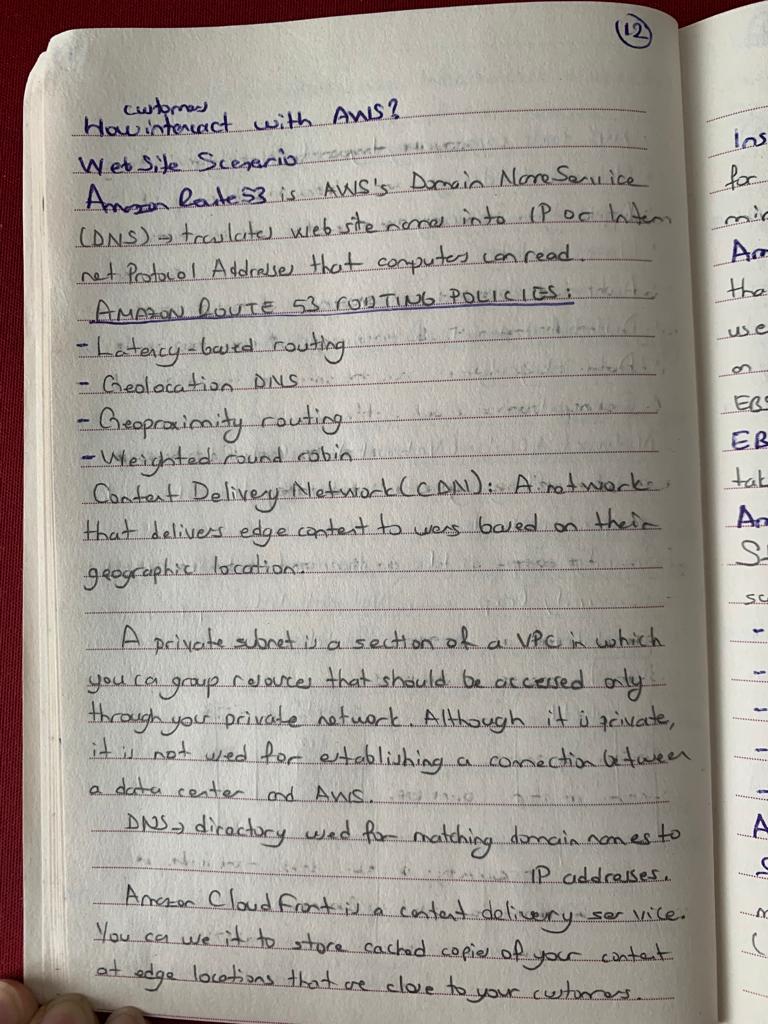 12
customers
How interact with AWS?
Web Site Scenario
Amazon Route 53 is AWS's Domain Name Service
(DNS) → translates web site names into IP or Inter
net Protocol Addresses that computers can read.
AMAZON ROUTE 53 ROUTING POLICIES:
- Latency-based routing
- Geolocation DNS
- Geoproximity routing
- Weighted round robin
Content Delivery Network (CDN): A network
that delivers edge content to users based on their
geographic location.
A private subnet is a section of a VPC in which
you ca group resources that should be accessed only
through your private network. Although it is private,
it is not used for establishing a connection between
a data center and AWS.
DNS → directory used for matching domain names to
IP addresses.
Amazon CloudFront is a content delivery service.
You can use it to store cached copies of your content
at edge locations that are close to your customers.
for
Am
tha
use
on
EBS
EB
tak